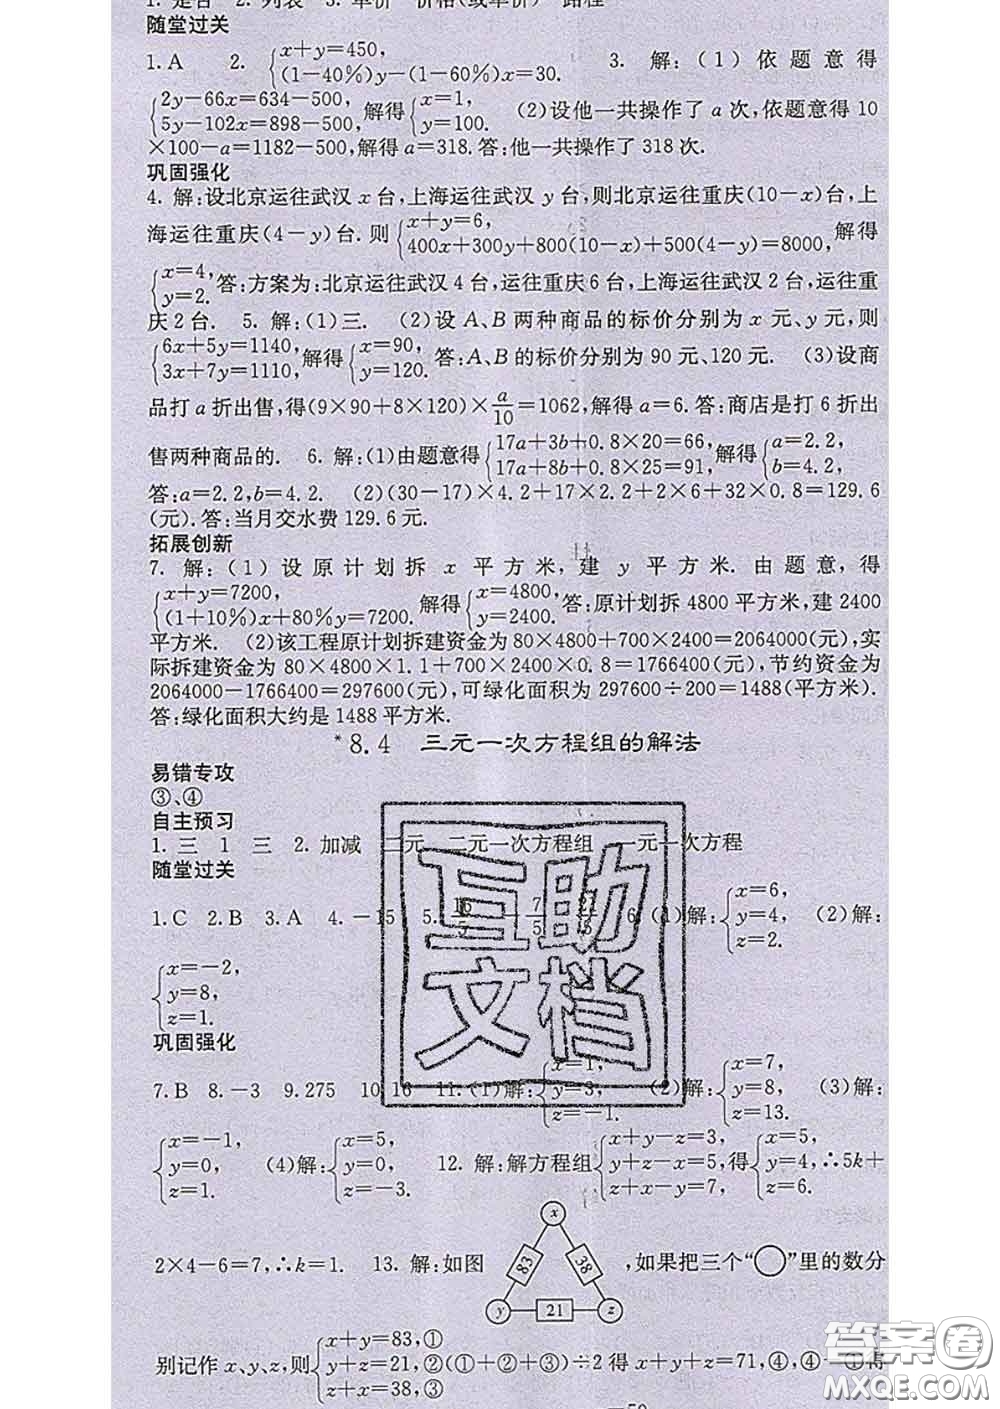 随堂过关
1. A　2. {x+y=450, (1-40%)y-(1-60%)x=30.　3. 解:(1)依题意得
{2y-66x=634-500, 5y-102x=898-500, 解得{x=1, y=100.　(2)设他一共操作了a次,依题意得10
×100-a=1182-500,解得a=318. 答:他一共操作了318次.
巩固强化
4. 解:设北京运往武汉x台,上海运往武汉y台,则北京运往重庆(10-x)台,上
海运往重庆(4-y)台. 则{x+y=6, 400x+300y+800(10-x)+500(4-y)=8000, 解得
{x=4, y=2. 答:方案为:北京运往武汉4台,运往重庆6台,上海运往武汉2台,运往重
庆2台.　5. 解:(1)三.　(2)设A、B两种商品的标价分别为x元、y元,则
{6x+5y=1140, 3x+7y=1110, 解得{x=90, y=120. 答:A、B的标价分别为90元、120元.　(3)设商
品打a折出售,得(9×90+8×120)×a/10=1062,解得a=6. 答:商店是打6折出
售两种商品的.　6. 解:(1)由题意得{17a+3b+0.8×20=66, 17a+8b+0.8×25=91, 解得{a=2.2, b=4.2.
答:a=2.2,b=4.2.　(2)(30-17)×4.2+17×2.2+2×6+32×0.8=129.6
(元). 答:当月交水费129.6元.
拓展创新
7. 解:(1)设原计划拆x平方米,建y平方米. 由题意,得
{x+y=7200, (1+10%)x+80%y=7200. 解得{x=4800, y=2400. 答:原计划拆4800平方米,建2400
平方米.　(2)该工程原计划拆建资金为80×4800+700×2400=2064000(元),实
际拆建资金为80×4800×1.1+700×2400×0.8=1766400(元),节约资金为
2064000-1766400=297600(元),可绿化面积为297600÷200=1488(平方米).
答:绿化面积大约是1488平方米.
*8.4　三元一次方程组的解法
易错专攻
③、④
自主预习
1. 三　1　三　2. 加减　二元一次方程组　一元一次方程
随堂过关
1. C　2. B　3. A　4. -15　5.　6. (1)解:{x=6, y=4, z=2.　(2)解:
{x=-2, y=8, z=1.
巩固强化
7. B　8. -3　9. 275　10. 16　11. (1)解:{x=1, y=3, z=-1.　(2)解:{x=7, y=8, z=13.　(3)解:
{x=-1, y=0, z=1.　(4)解:{x=5, y=0, z=-3.　12. 解:解方程组{x+y-z=3, y+z-x=5, z+x-y=7, 得{x=5, y=4, z=6. ∴5k+
2×4-6=7,∴k=1.　13. 解:如图　,如果把三个“○”里的数分
x
83　38
y　21　z
别记作x、y、z,则{x+y=83,① y+z=21,② z+x=38,③ (①+②+③)÷2得x+y+z=71,④,④-①得
互助
文档
答案圈
MXQE.COM